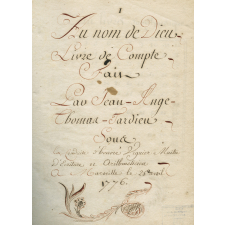 1
Au nom de Dieu
Livre de Compte
Fait
Par Jean-Ange-
Thomas-Tardieu
Sous
La conduite d'honoré Maitre
d'Ecriture et Arithmétique
A Marseille le avril
1776.